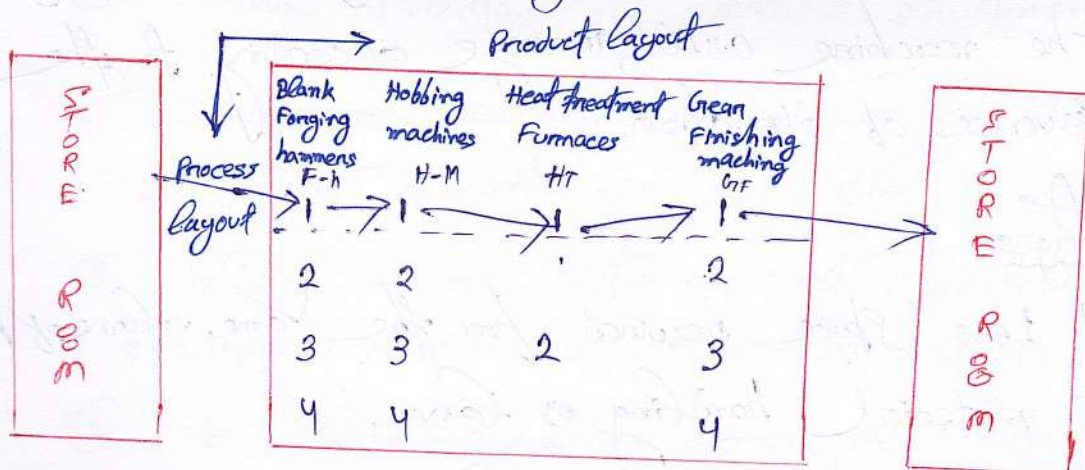 Product layout
Process
layout
STORE ROOM
Blank
Forging
hammers
F-h
Hobbing
machines
H-M
Heat treatment
Furnaces
HT
Gear
Finishing
maching
GF
1 1 1 1
2 2 2
3 3 2 3
4 4 4
STORE ROOM